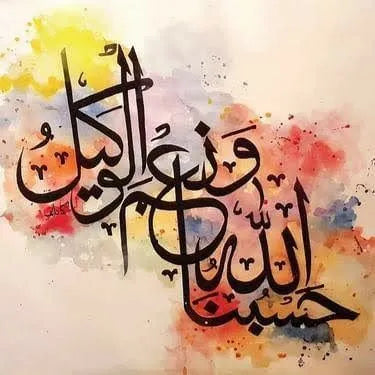 حَسْبُنَا اللّٰهُ
وَنِعْمَ الْوَكِيلُ